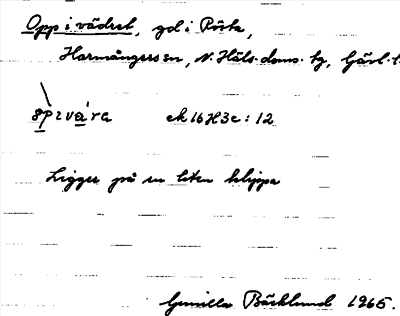 Opp i vädret, gd i Röste,
Harmångers sn, N. Häls. doms. tg, Gävl. l
ek 16H3c:12
Ligger på en liten klippa
Gunilla Bäcklund 1965.